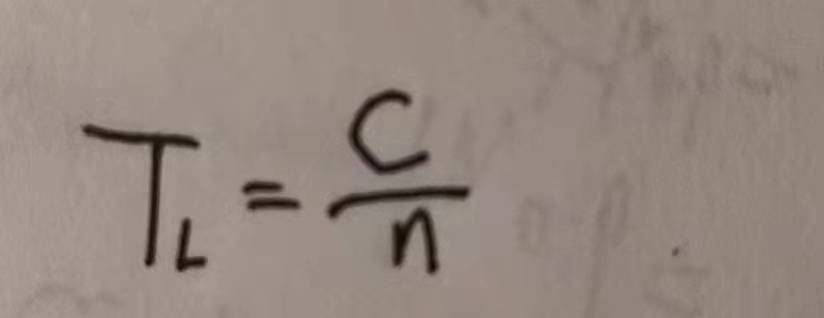 T_L = C/n